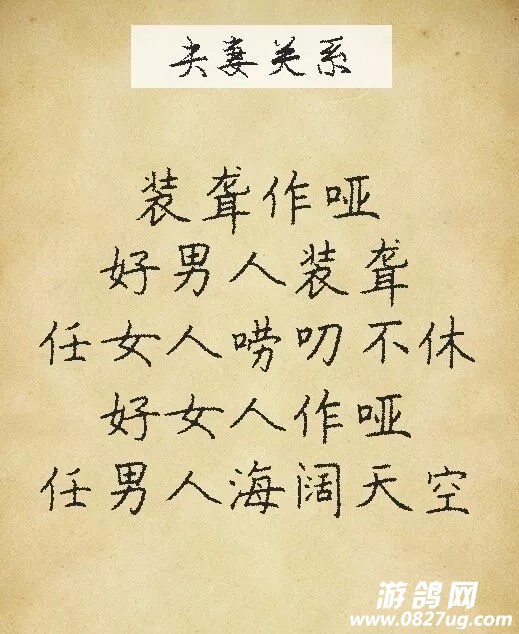 夫妻关系
装聋作哑
好男人装聋
任女人唠叨不休
好女人作哑
任男人海阔天空
游鸽网
www.0827ug.com